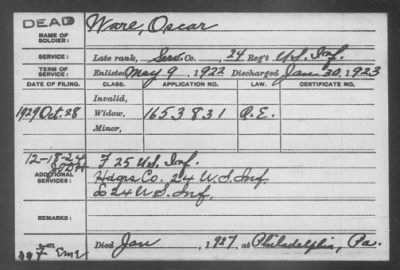 DEAD
NAME OF SOLDIER: Ware, Oscar
SERVICE: Late rank, Serv. Co. 24 Reg't U.S. Inf.
TERM OF SERVICE: Enlisted May 9, 1922 Discharged Jan. 30, 1923
DATE OF FILING. CLASS. APPLICATION NO. LAW. CERTIFICATE NO.
Invalid,
1929 Oct. 28 Widow, 1653831 R.E.
Minor,
12-18-24
ADDITIONAL SERVICES: F 25 U.S. Inf.
Hdqrs Co. 24 U.S. Inf.
E 24 U.S. Inf.
REMARKS:
Died Jan , 1927, at Philadelphia, Pa.